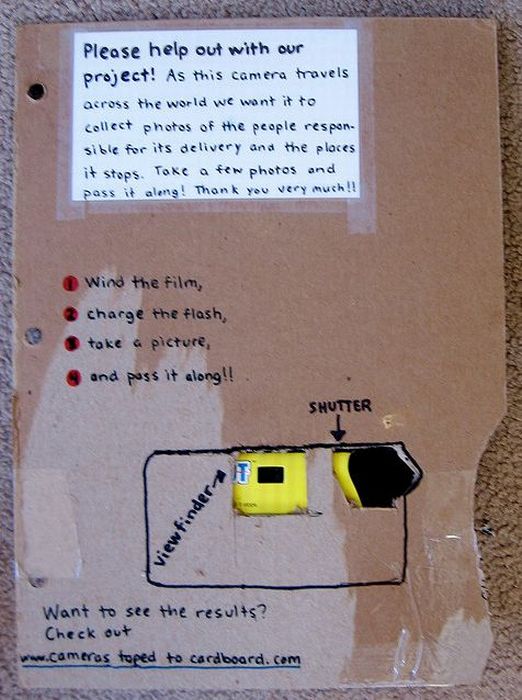 Please help out with our
project! As this camera travels
across the world we want it to
collect photos of the people respon-
sible for its delivery and the places
it stops. Take a few photos and
pass it along! Thank you very much!!
1 Wind the film,
2 charge the flash,
3 take a picture,
4 and pass it along!!
SHUTTER
Viewfinder
Want to see the results?
Check out
www.cameras taped to cardboard.com